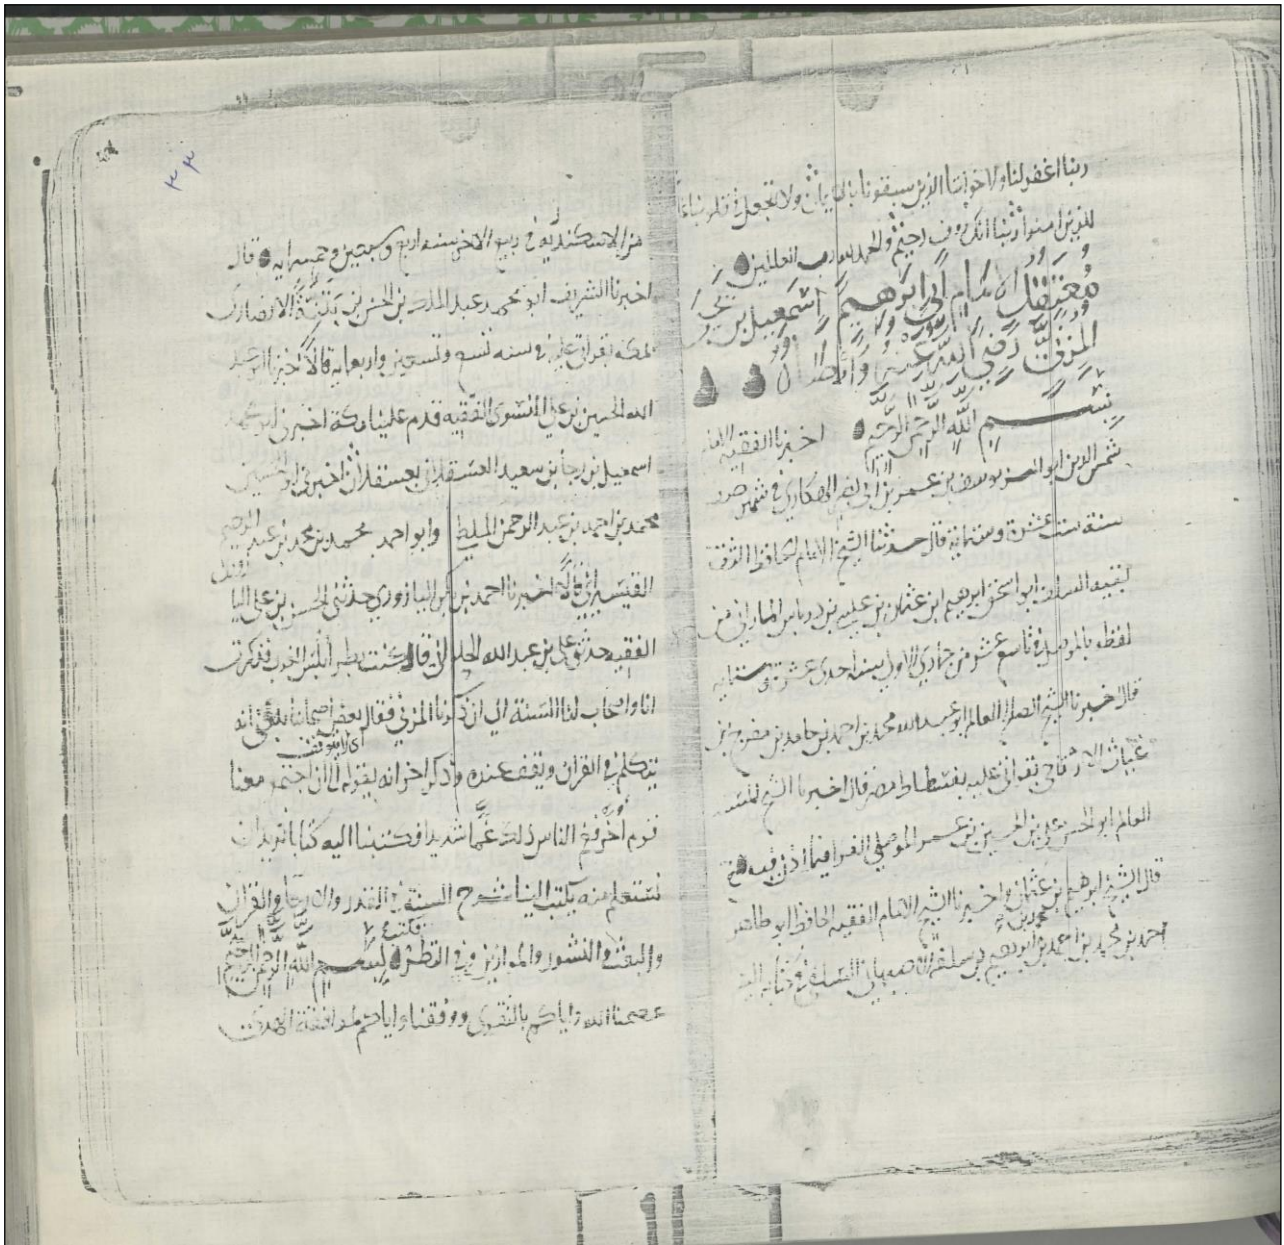 ربنا اغفر لنا ولاخواننا الذين سبقونا بالايمان ولا تجعل في قلوبنا غلا
للذين امنوا ربنا انك روف رحيم والحمد لله رب العالمين
مُعْتَقَد الامام ابي ابرهيم اسمعيل بن يحيى
المزني رضي الله عنه وارضاه
بسم الله الرحمن الرحيم اخبرنا الفقيه الامام
شمس الدين ابو العز يوسف بن عمر بن ابي نصر الهكاري في شهر صفر
سنة ست عشرة وستماية قال حدثنا الشيخ الامام الحافظ الثقة
بقية السلف ابو اسحق ابرهيم ابن عثمان بن عيسى بن درباس الماراني من
لفظه بالموصل في تاسع عشر من جمادى الاول سنة احدى عشرة وستماية
قال اخبرنا الشيخ الصالح العالم ابو عبد الله محمد بن احمد بن حامد بن مفرج بن
غياث الارتاحي بقراتي عليه بفسطاط مصر قال اخبرنا الشيخ المسند
العالم ابو الحسن علي بن الحسين بن عمر الموصلي الفرا فيما اذن فيه ح
قال الشيخ ابرهيم بن عثمان واخبرنا الشيخ الامام الفقيه الحافظ ابو طاهر
احمد بن محمد بن احمد بن محمد بن ابرهيم بن سلفة الاصبهاني السلفي في كتابه الينا
٣٣
من الاسكندرية في ربيع الاخر سنة اربع وسبعين وخمسماية قال
اخبرنا الشريف ابو محمد عبد الملك بن الحسن بن بتنة الانصاري
بمكة بقراتي عليه في سنة تسع وتسعين واربعماية قالا اخبرنا ابو عبد
الله الحسين بن علي النسوي الفقيه قدم علينا مكة اخبرني ابو محمد
اسمعيل بن رجا بن سعيد العسقلاني بعسقلان اخبرني ابو الحسين
محمد بن احمد بن عبد الرحمن الملطي وابو احمد محمد بن محمد بن عبد الرحيم
القيسراني قالا اخبرنا احمد بن بكر اليازوري حدثني الحسن بن علي اليازوري
الفقيه حدثني علي بن عبد الله الحلواني قال كنت بطرابلس المغرب فذكرت
انا واصحاب لنا السنة الى ان ذكرنا المزني فقال بعض اصحابنا بلغني انه
يتكلم في القران ويقف عنده وذكر اخر انه يقوله الى ان اجتمع معنا
قوم اخر فغم الناس ذلك غما شديدا فكتبنا اليه كتابا نريد ان
نستعلم منه يكتب الينا شرح السنة في القدر والارجا والقران
والبعث والنشور والموازين وفي النظر فكتب بسم الله الرحمن الرحيم
عصمنا الله واياكم بالتقوى ووفقنا واياكم لموافقة الهدى